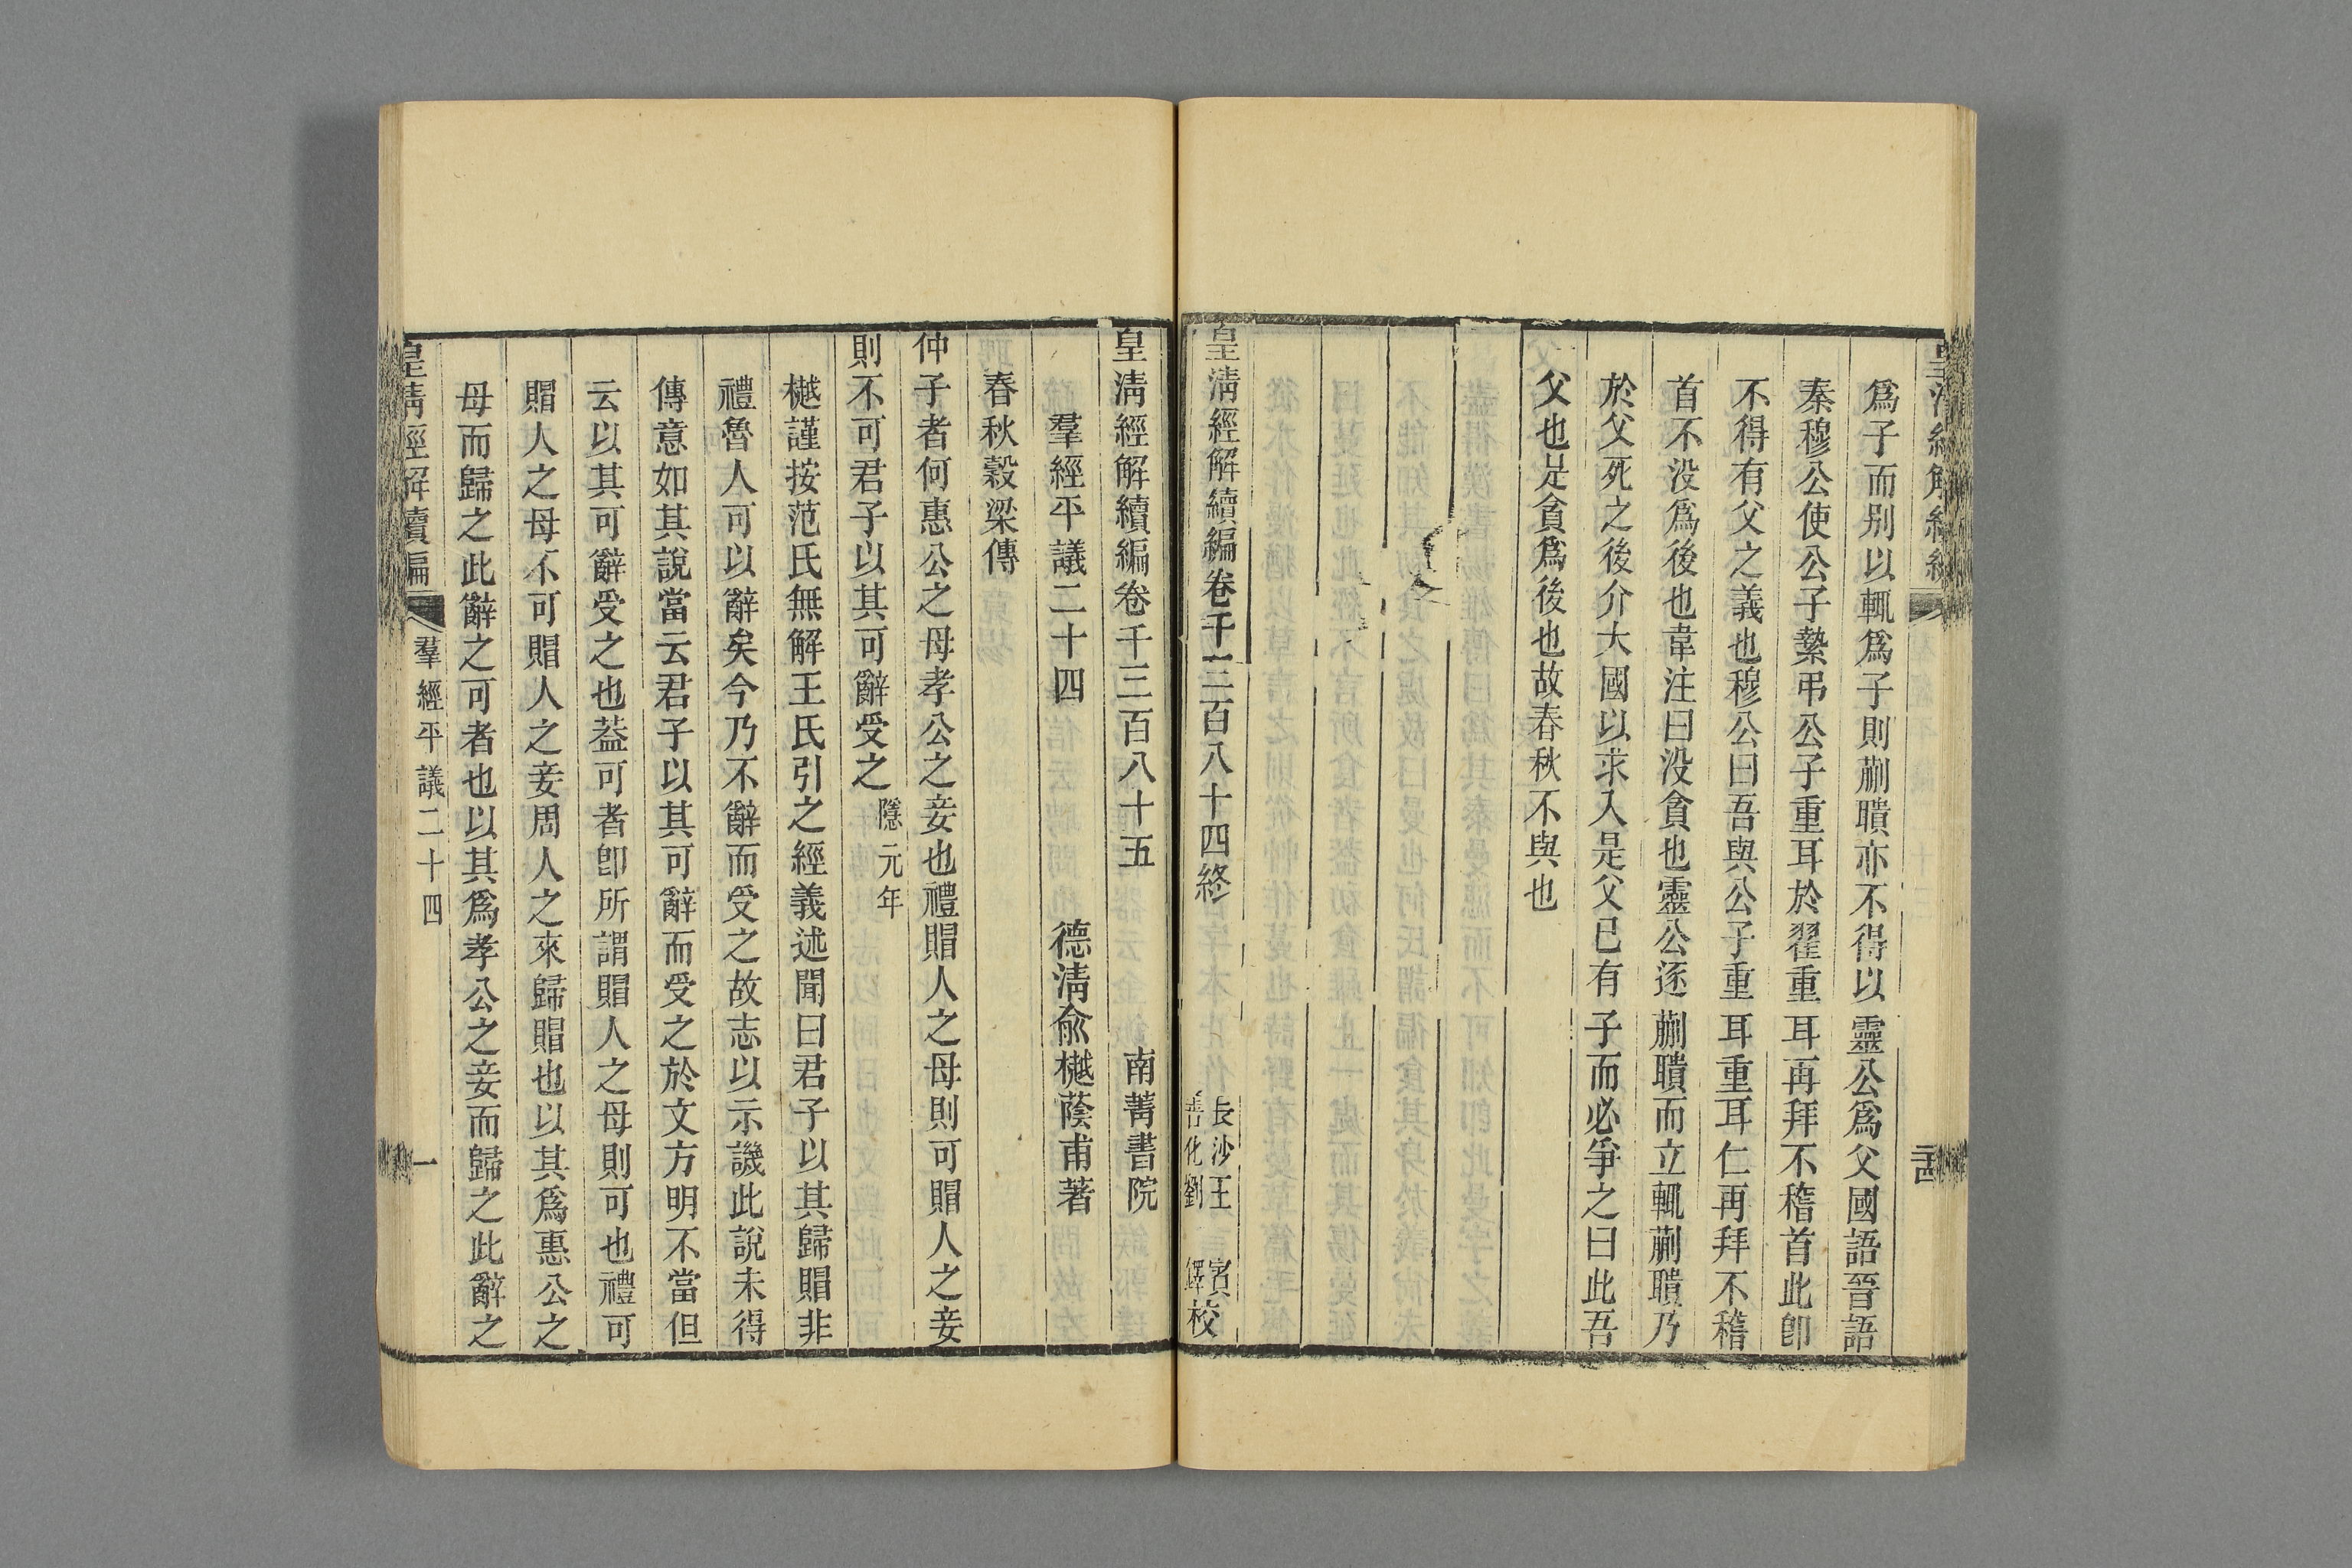 爲子而别以輒爲子則蒯聵亦不得以靈公爲父國語晉語
秦穆公使公子縶弔公子重耳於翟重耳再拜不稽首此卽
不得有父之義也穆公曰吾與公子重耳重耳仁再拜不稽
首不没爲後也韋注曰没貪也靈公逐蒯聵而立輒蒯聵乃
於父死之後介大國以求入是父已有子而必爭之曰此吾
父也是貪爲後也故春秋不與也
皇淸經解續編卷千三百八十四終
長沙王賓
善化劉鐸校
皇淸經解續編卷千三百八十五
南菁書院
羣經平議二十四
德淸俞樾蔭甫著
春秋穀梁傳
仲子者何惠公之母孝公之妾也禮賵人之母則可賵人之妾
則不可君子以其可辭受之隱元年
樾謹按范氏無解王氏引之經義述聞曰君子以其歸賵非
禮魯人可以辭矣今乃不辭而受之故志以示譏此說未得
傳意如其說當云君子以其可辭而受之於文方明不當但
云以其可辭受之也葢可者卽所謂賵人之母則可也禮可
賵人之母不可賵人之妾周人之來歸賵也以其爲惠公之
母而歸之此辭之可者也以其爲孝公之妾而歸之此辭之
皇淸經解續編
羣經平議二十四
一